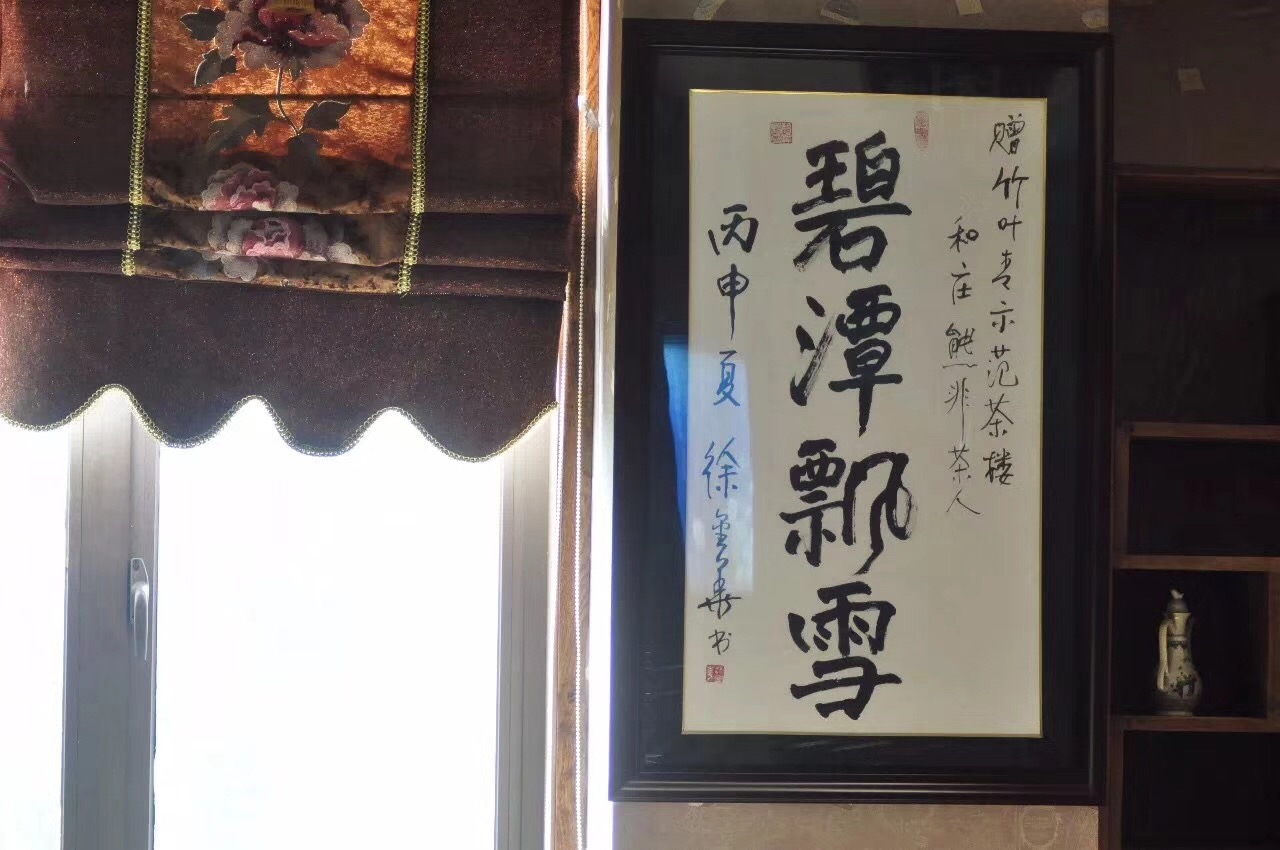 赠竹叶青示范茶楼
和庄熊非茶人
碧潭飘雪
丙申夏 徐金华书